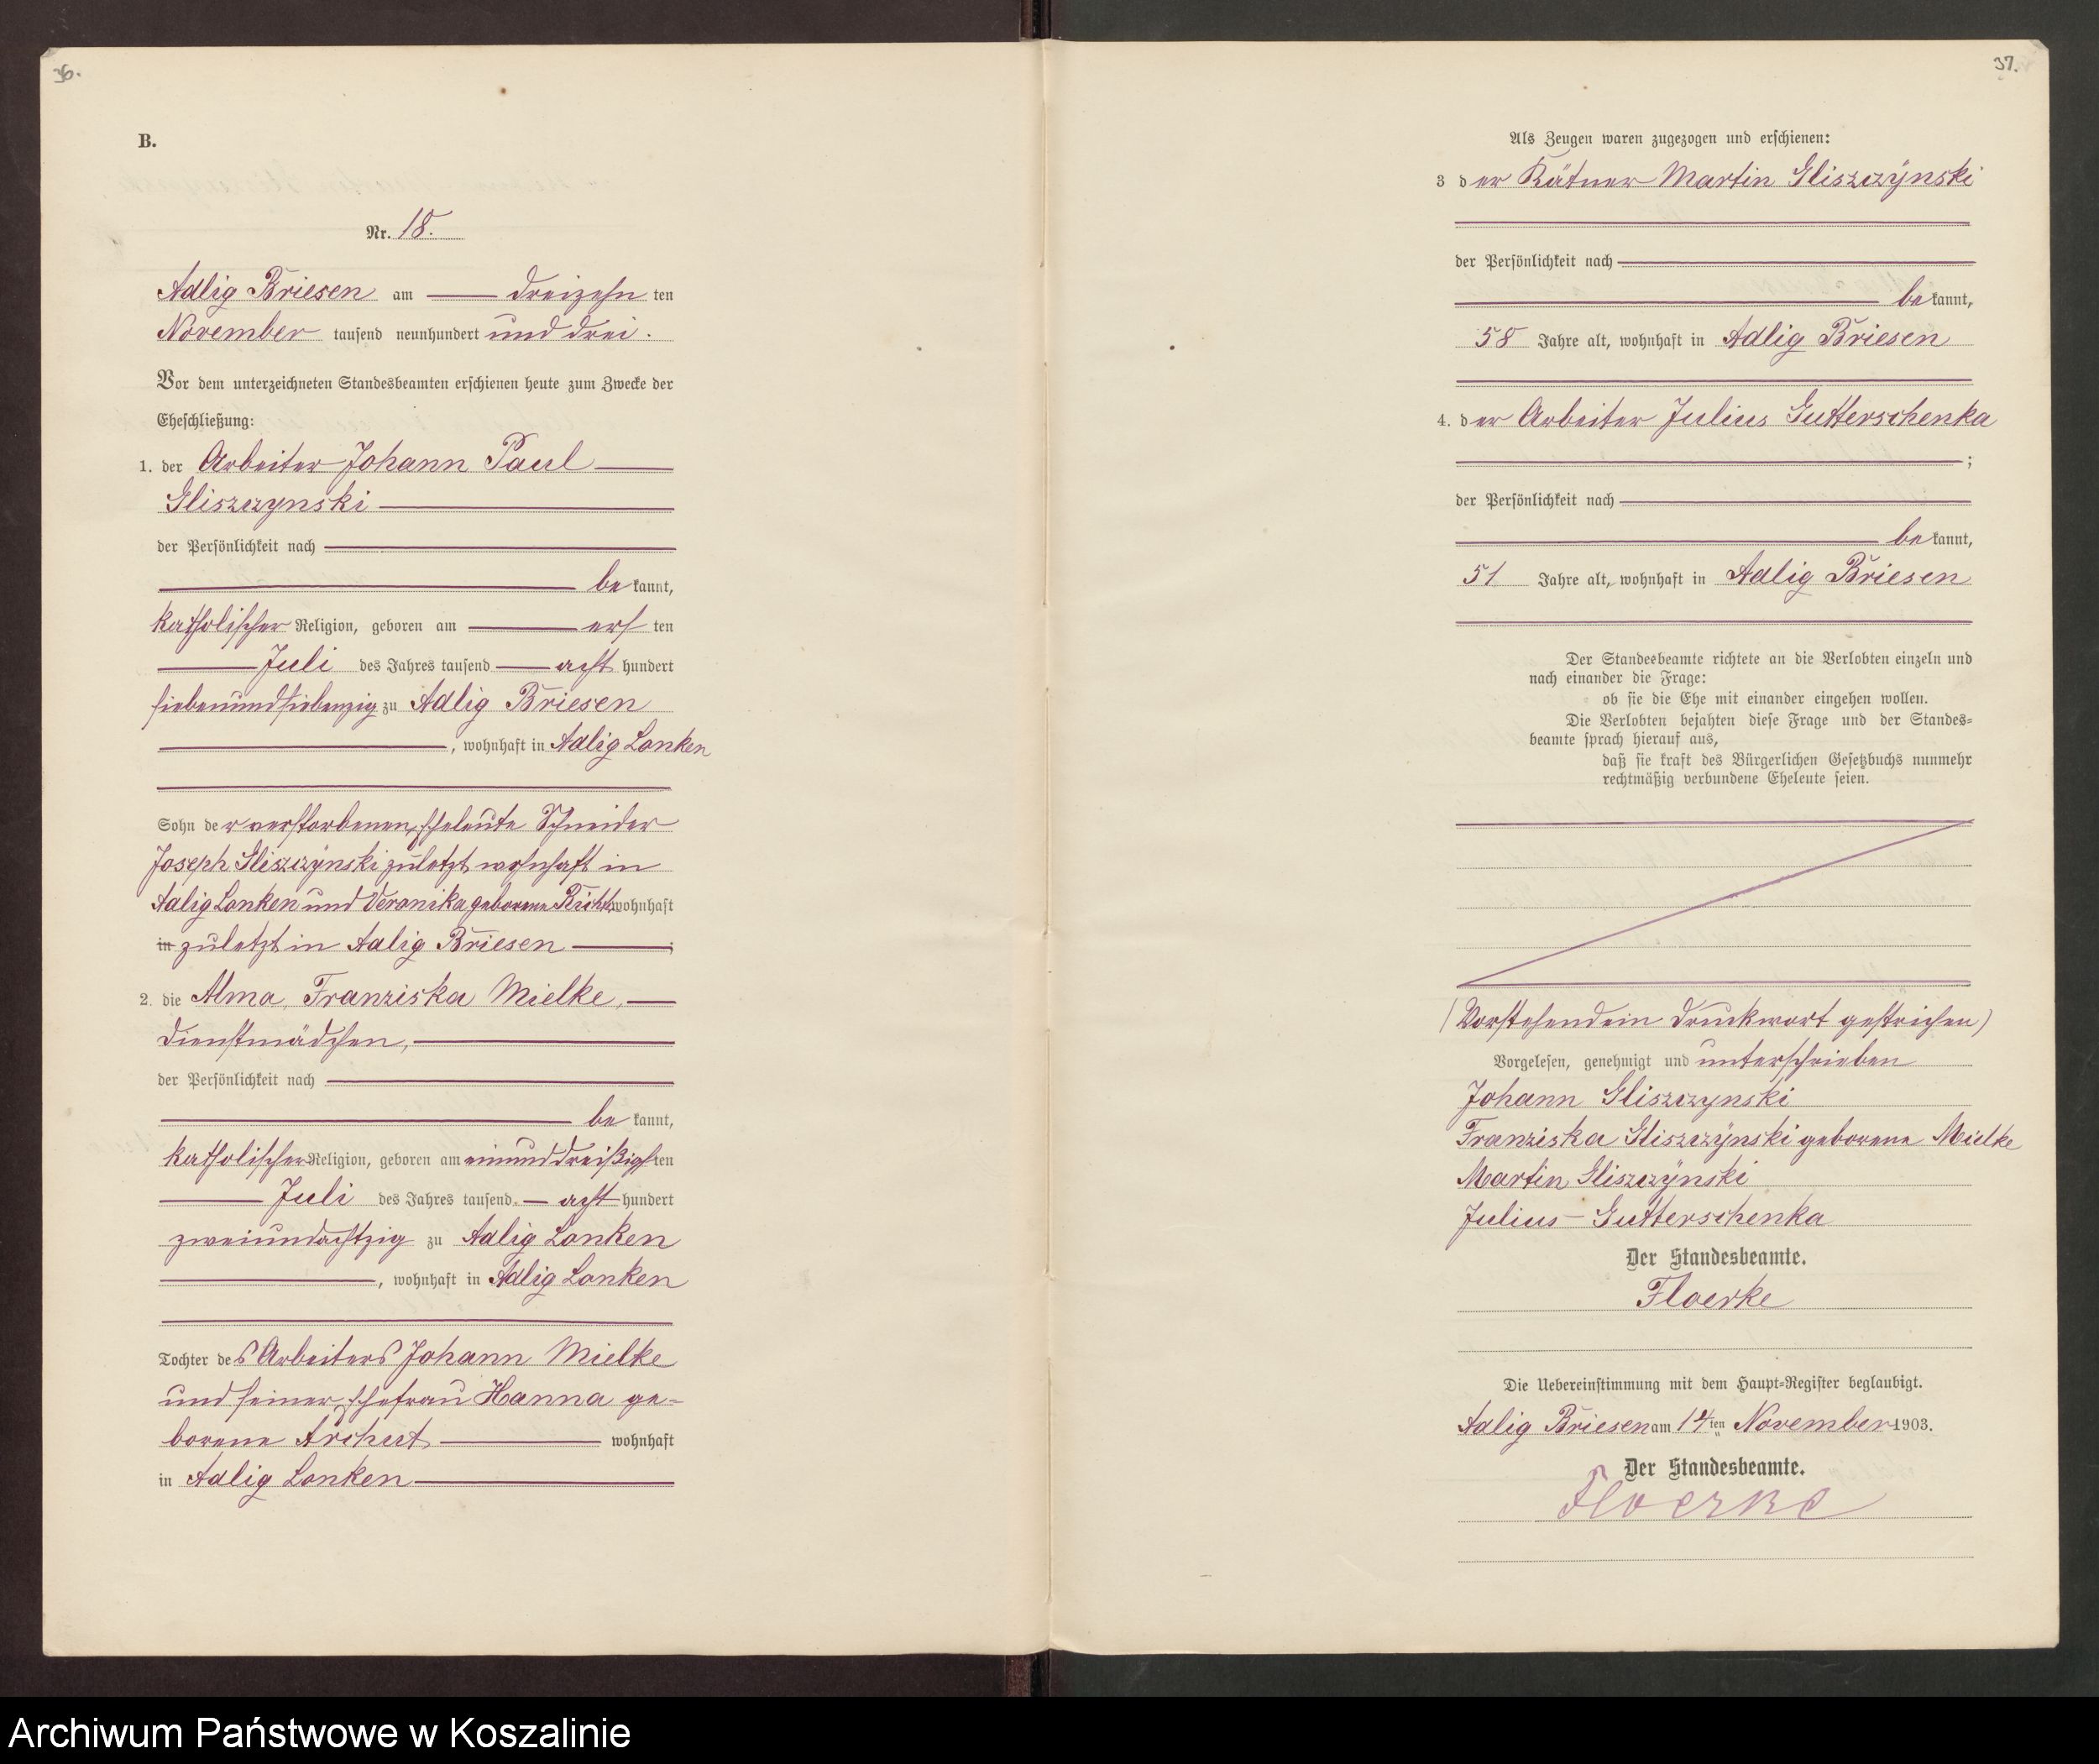 36.
B.
Nr. 18.
Adlig Briesen am dreizehn ten
November tausend neunhundert und drei.
Vor dem unterzeichneten Standesbeamten erschienen heute zum Zwecke der
Eheschließung:
1. der Arbeiter Johann Paul
Gliszczynski
der Persönlichkeit nach
be kannt,
katholischer Religion, geboren am ers ten
Juli des Jahres tausend acht hundert
siebenundsiebenzig zu Adlig Briesen
, wohnhaft in Adlig Lonken
Sohn der verstorbenen Eheleute Schneider
Joseph Gliszczÿnski zuletzt wohnhaft in
Adlig Lonken und Veronika geborene wohnhaft
in zuletzt in Adlig Briesen ;
2. die Alma Franziska Mielke,
Dienstmädchen,
der Persönlichkeit nach
be kannt,
katholischer Religion, geboren am einunddreißigsten
Juli des Jahres tausend acht hundert
zweiundachtzig zu Adlig Lonken
, wohnhaft in Adlig Lonken
Tochter des Arbeiters Johann Mielke
und seiner Ehefrau Hanna ge-
borene wohnhaft
in Adlig Lonken
37.
Als Zeugen waren zugezogen und erschienen:
3 der Kätner Martin Gliszczÿnski
der Persönlichkeit nach
be kannt,
58 Jahre alt, wohnhaft in Adlig Briesen
4. der Arbeiter Julius Gutterschenka
;
der Persönlichkeit nach
be kannt,
51 Jahre alt, wohnhaft in Adlig Briesen
Der Standesbeamte richtete an die Verlobten einzeln und
nach einander die Frage:
ob sie die Ehe mit einander eingehen wollen.
Die Verlobten bejahten diese Frage und der Standes=
beamte sprach hierauf aus,
daß sie kraft des Bürgerlichen Gesetzbuchs nunmehr
rechtmäßig verbundene Eheleute seien.
(Vorstehend ein Druckwort gestrichen)
Vorgelesen, genehmigt und unterschrieben
Johann Gliszczynski
Franziska Gliszczÿnski geborene Mielke
Martin Gliszczÿnski
Julius Gutterschenka
Der Standesbeamte.
Floerke
Die Uebereinstimmung mit dem Haupt=Register beglaubigt.
Adlig Briesen am 14 ten November 1903.
Der Standesbeamte.
Floerke
Archiwum Państwowe w Koszalinie